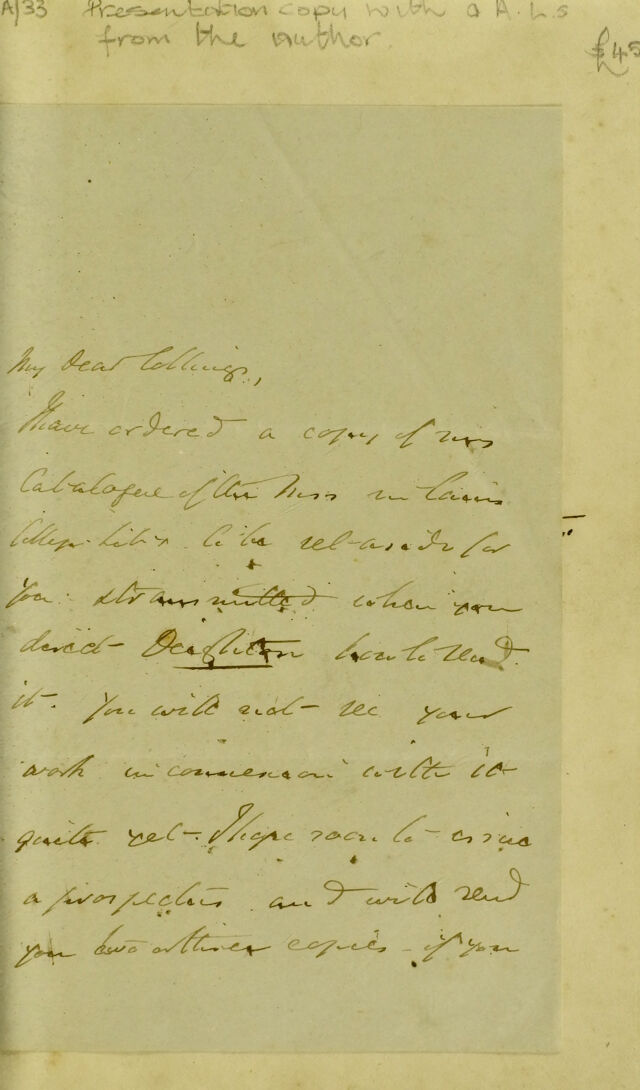 A/33 Presentation copy with a A.L.s
from the author.
£45
My dear Collings,
I have ordered a copy of my
Catalogue of the Mss in Caius
College Lib: to be set aside for
you & transmitted when you
direct Deighton how to send
it. You will not see your
work in connexion with it
quite yet. I hope soon to issue
a prospectus and will send
you two or three copies if you